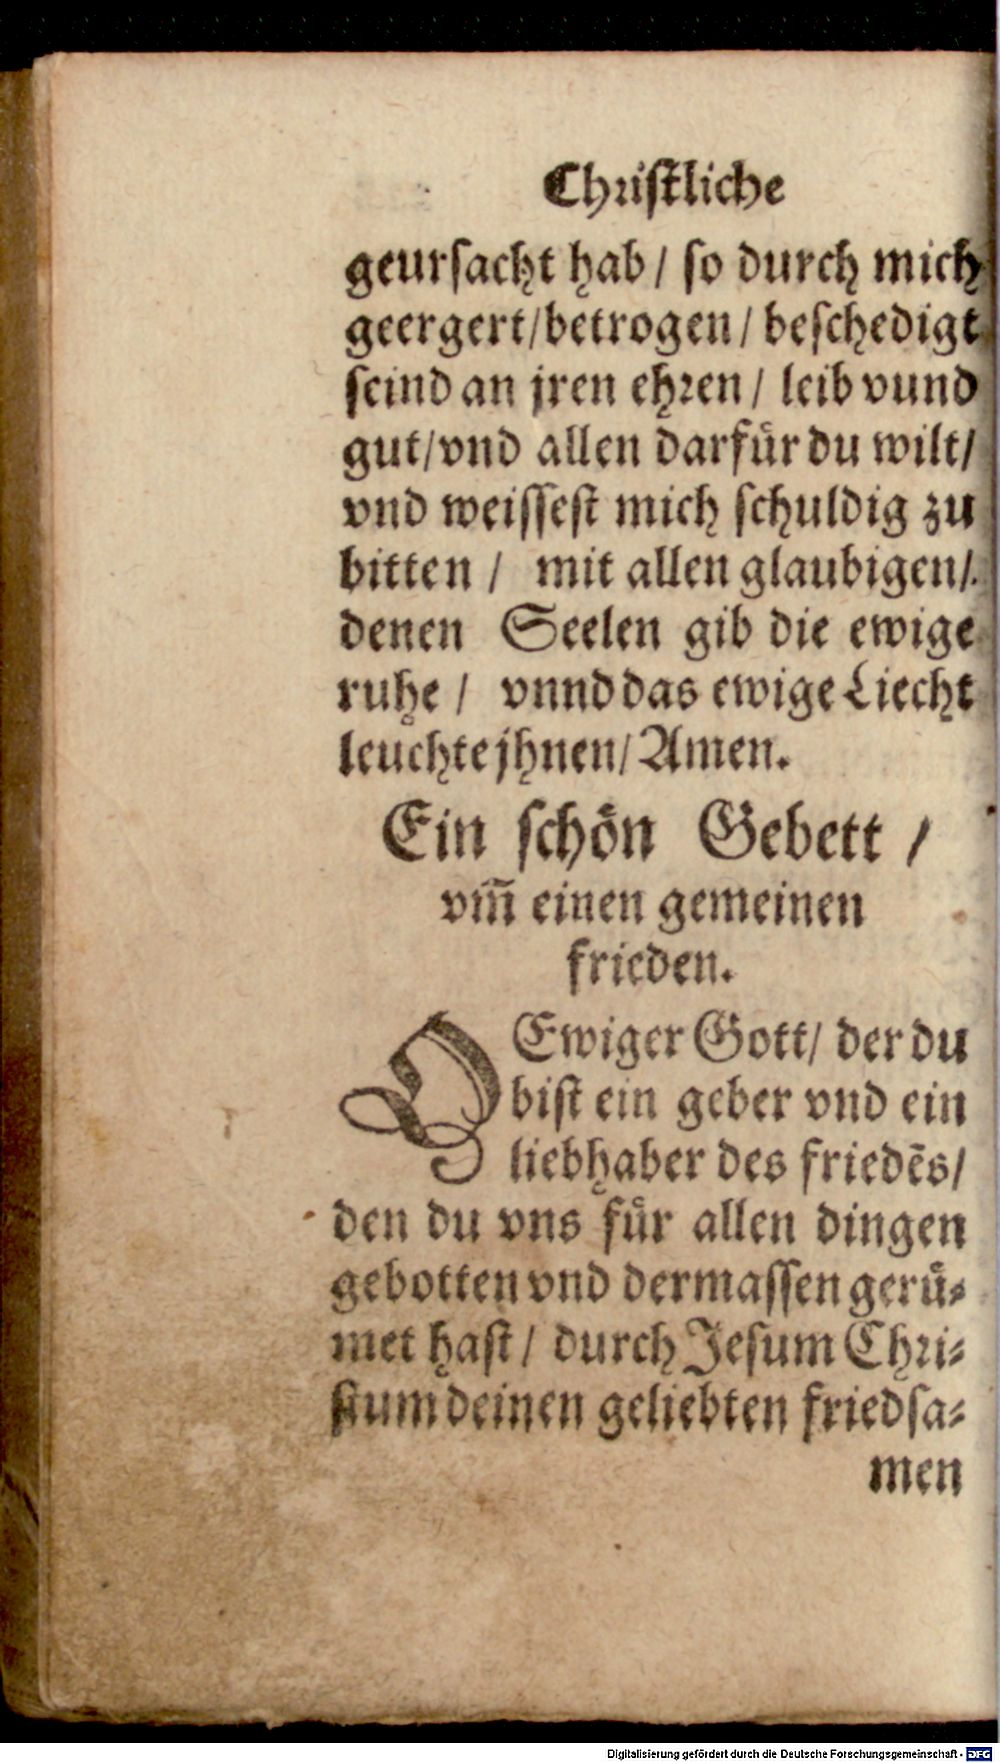 Christliche
geursacht hab / so durch mich
geergert/betrogen / beschedigt
seind an jren ehren / leib vund
gut/vnd allen darfür du wilt/
vnd weissest mich schuldig zu
bitten / mit allen glaubigen/
denen Seelen gib die ewige
ruhe / vnnd das ewige Liecht
leuchte jhnen/Amen.
Ein schön Gebett /
vm̄ einen gemeinen
frieden.
O Ewiger Gott/ der du
bist ein geber vnd ein
liebhaber des friedēs/
den du vns für allen dingen
gebotten vnd dermassen gerü-
met hast / durch Jesum Chri-
stum deinen geliebten friedsa-
men
Digitalisierung gefördert durch die Deutsche Forschungsgemeinschaft - DFG